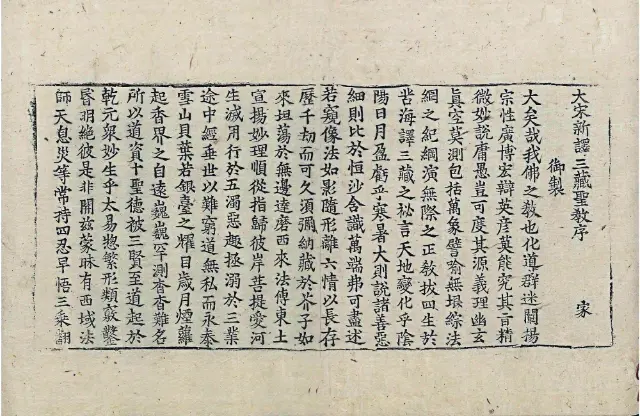 大宋新譯三藏聖教序
御製 家
大矣哉我佛之教也化導群迷闡揚
宗性廣博宏辯英彦莫能究其旨精
微妙說庸愚豈可度其源義理幽玄
真空莫測包括萬象譬喻無垠綜法
網之紀綱演無際之正教拔四生於
苦海譯三藏之秘言天地變化乎陰
陽日月盈虧乎寒暑大則說諸善惡
細則比於恒沙含識萬端弗可盡述
若窺像法如影隨形離六情以長存
歷千劫而可久須彌納藏於芥子如
來坦蕩於無邊達磨西來法傳東土
宣揚妙理順從指歸彼岸菩提愛河
生滅用行於五濁惡趣拯溺於三業
途中經垂世以難窮道無私而永泰
雪山貝葉若銀臺之耀目歲月煙蘿
起香界之自遠巍巍罕測杳杳難名
所以道資十聖德被三賢至道起於
乾元眾妙生乎太易惣繁形類竅鑿
昏明絕彼是非開茲蒙昧有西域法
師天息災等常持四忍早悟三乘翻